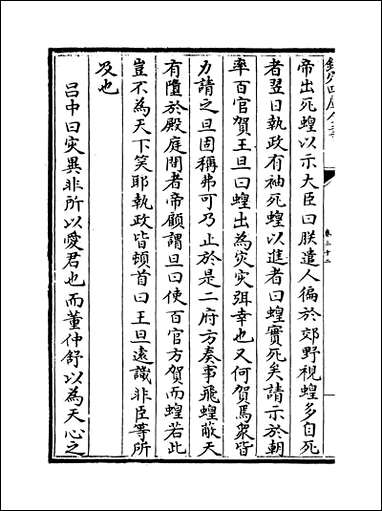 欽定四庫全書
卷二十二
帝出死蝗以示大臣曰朕遣人徧於郊野視蝗多自死
者翌日執政有袖死蝗以進者曰蝗實死矣請示於朝
率百官賀王旦曰蝗出為災災弭幸也又何賀焉衆皆
力請之旦固稱弗可乃止於是二府方奏事飛蝗蔽天
有墮於殿庭間者帝顧謂旦曰使百官方賀而蝗若此
豈不為天下笑耶執政皆頓首曰王旦遠識非臣等所
及也
吕中曰災異非所以愛君也而董仲舒以為天心之